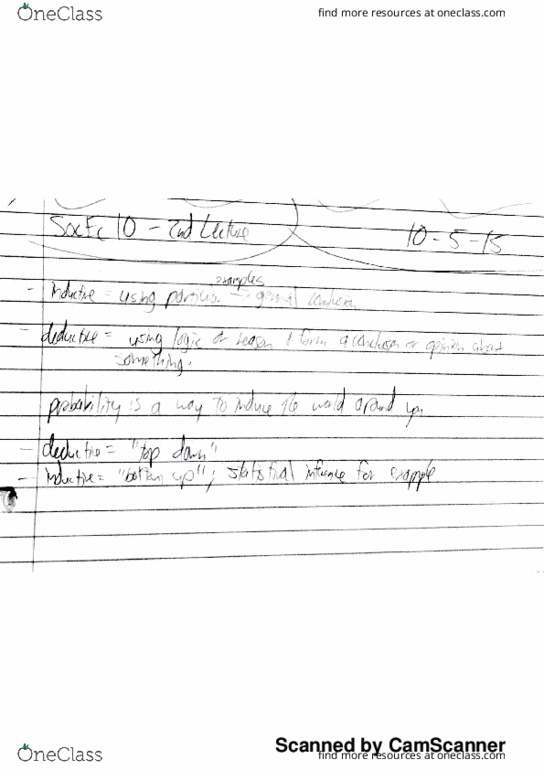 OneClass
find more resources at oneclass.com
SocEc 10 - 2nd Lecture
10-5-15
examples
- inductive = using particular → general conclusion
- deductive = using logic or reason to form a conclusion or opinion about
something.
probability is a way to induce the world around you
- deductive = "top down"
- inductive = "bottom up"; statistical inference for example
Scanned by CamScanner
OneClass
find more resources at oneclass.com